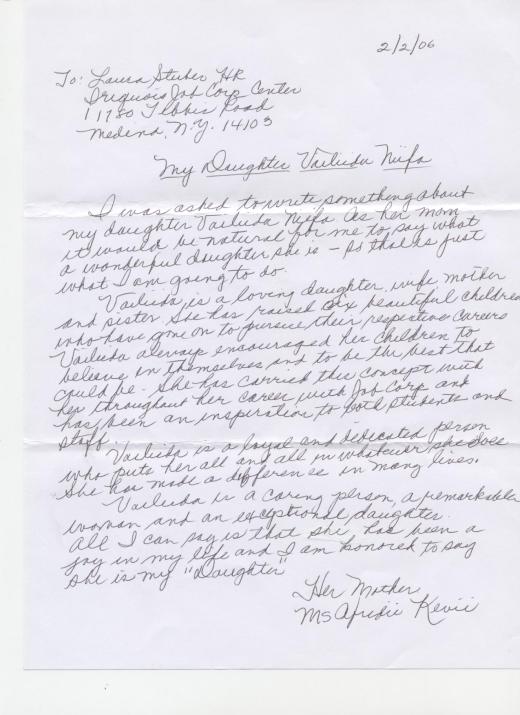 2/2/06
To: Laura Stuber HR
Iroquois Job Corp Center
11780 Tibbits Road
Medina, N.Y. 14103
My Daughter Vailuda Niifa
I was asked to write something about
my daughter Vailuda Niifa. As her mom
it would be natural for me to say what
a wonderful daughter she is – so that is just
what I am going to do.
Vailuda is a loving daughter, wife mother
and sister. She has raised six beautiful children
who have gone on to pursue their respective careers
Vailuda always encouraged her children to
believe in themselves and to be the best that
could be. She has carried this concept with
her throughout her career with Job Corp and
has been an inspiration to both students and
staff.
Vailuda is a loyal and dedicated person
who puts her all and all in whatever she does
She has made a difference in many lives.
Vailuda is a caring person, a remarkable
woman and an exceptional daughter.
All I can say is that she has been a
joy in my life and I am honored to say
she is my "Daughter"
Her Mother
Ms Kevii